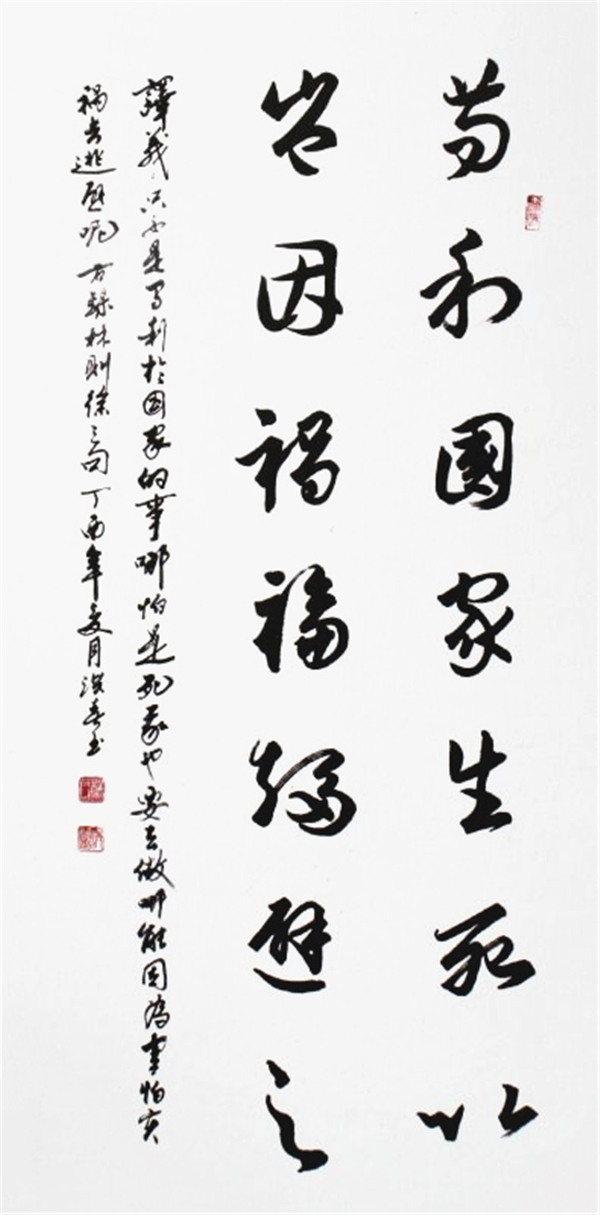 苟利國家生死以
豈因禍福趨避之
譯義只要是有利於國家的事哪怕是死我也要去做哪能因為害怕災
禍去逃避呢 右錄林則徐之句丁酉年夏月書